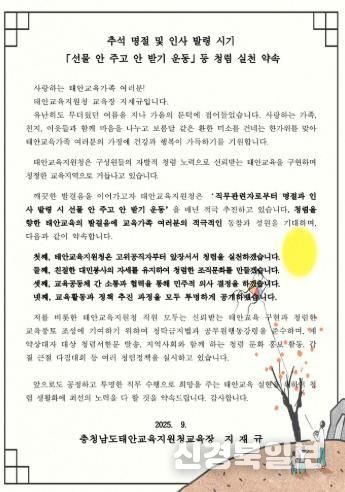 추석 명절 및 인사 발령 시기
「선물 안 주고 안 받기 운동」 등 청렴 실천 약속
사랑하는 태안교육가족 여러분!
태안교육지원청 교육장 지재규입니다.
유난히도 무더웠던 여름을 지나 가을의 문턱에 접어들었습니다. 사랑하는 가족,
친지, 이웃들과 함께 마음을 나누고 보름달 같은 환한 미소를 건네는 한가위를 맞아
태안교육가족 여러분의 가정에 건강과 행복이 가득하기를 기원합니다.
태안교육지원청은 구성원들의 자발적 청렴 노력으로 신뢰받는 태안교육을 구현하며
청정한 교육지역으로 거듭나고 있습니다.
깨끗한 발걸음을 이어가고자 태안교육지원청은 '직무관련자로부터 명절과 인
사 발령 시 선물 안 주고 안 받기 운동'을 매년 적극 추진하고 있습니다. 청렴을
향한 태안교육의 발걸음에 교육가족 여러분의 적극적인 동참과 성원을 기대하며,
다음과 같이 약속합니다.
첫째, 태안교육지원청은 고위공직자부터 앞장서서 청렴을 실천하겠습니다.
둘째, 친절한 대민봉사의 자세를 유지하여 청렴한 조직문화를 만들겠습니다.
셋째, 교육공동체 간 소통과 협력을 통해 민주적 의사 결정을 하겠습니다.
넷째, 교육활동과 정책 추진 과정을 모두 투명하게 공개하겠습니다.
저를 비롯한 태안교육지원청 직원 모두는 신뢰받는 태안교육 구현과 청렴한
교육풍토 조성에 기여하기 위하여 청탁금지법과 공무원행동강령을 준수하며, 계
약상대자 대상 청렴서한문 발송, 지역사회와 함께 하는 청렴 문화 홍보 활동, 갑
질 근절 다짐대회 등 여러 청렴정책을 실시하고 있습니다.
앞으로도 공정하고 투명한 직무 수행으로 희망을 주는 태안교육 실현을 위하여 청
렴 생활화에 최선의 노력을 다 할 것을 약속드립니다. 감사합니다.
2025. 9.
충청남도태안교육지원청교육장 지 재 규
신경북일보